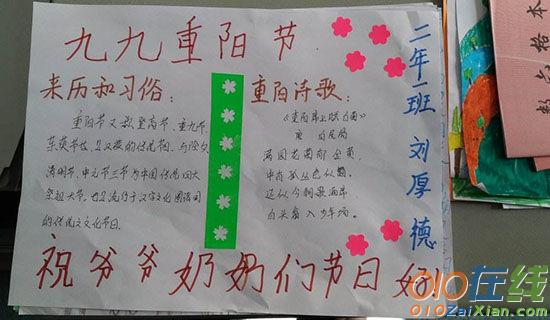 九九重阳节
来历和习俗：
重阳节又叫登高节、重九节、
茱萸节也是汉族的传统节日，与除夕、
清明节、中元节三节为中国传统四大
祭祖大节。也是流行于汉字文化圈诸国
的传统文化节日。
重阳诗歌：
满园花菊郁金黄，
中有孤丛色似霜。
还似今朝歌酒席
白头翁入少年场。
二年一班 刘厚德
祝爷爷奶奶们节日好
数学格本
010在线
010ZaiXian.com